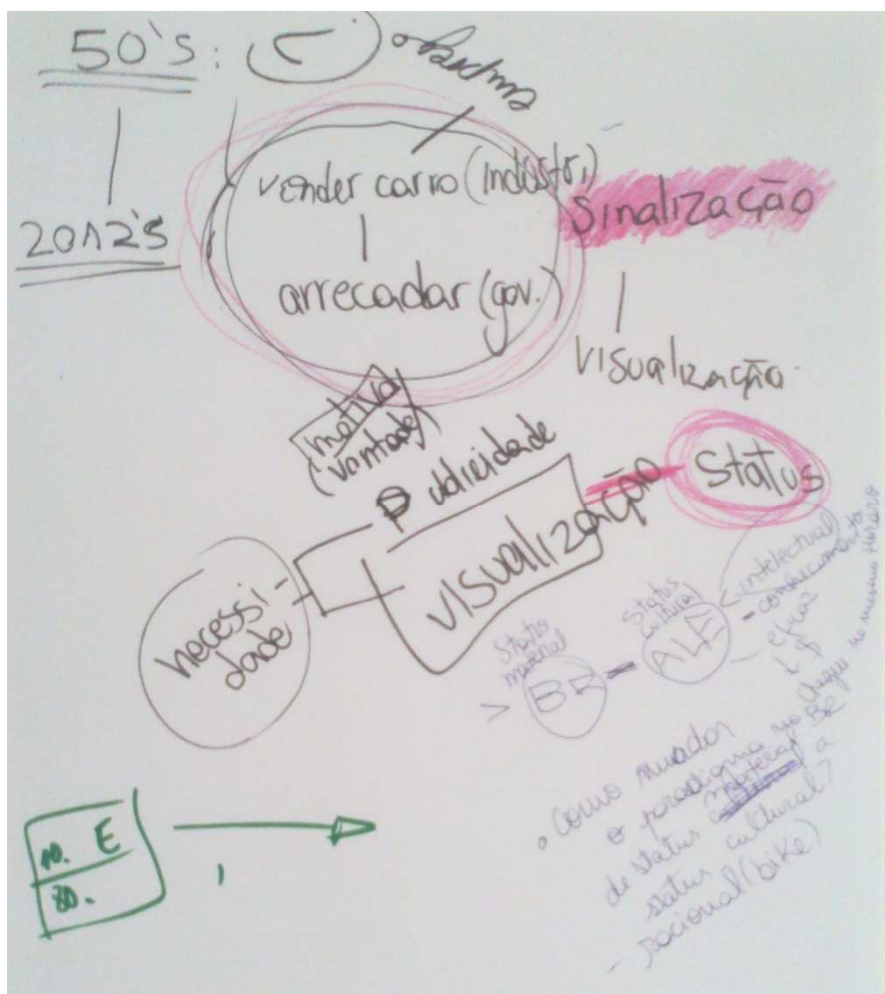 50's:
2012's
vender carro (indústr.)
arrecadar (gov.)
Sinalização
visualização
motiva
(vontade)
Publicidade
visualização
Status
necessi-
dade
Status
material
> BR
Status
cultural
ALE
< intelectual
- conhecimento
- eficaz
Chega no mesmo horário
• Como mudar
o paradigma no BR
de status material a
status cultural?
- racional (bike)
10. E
80.